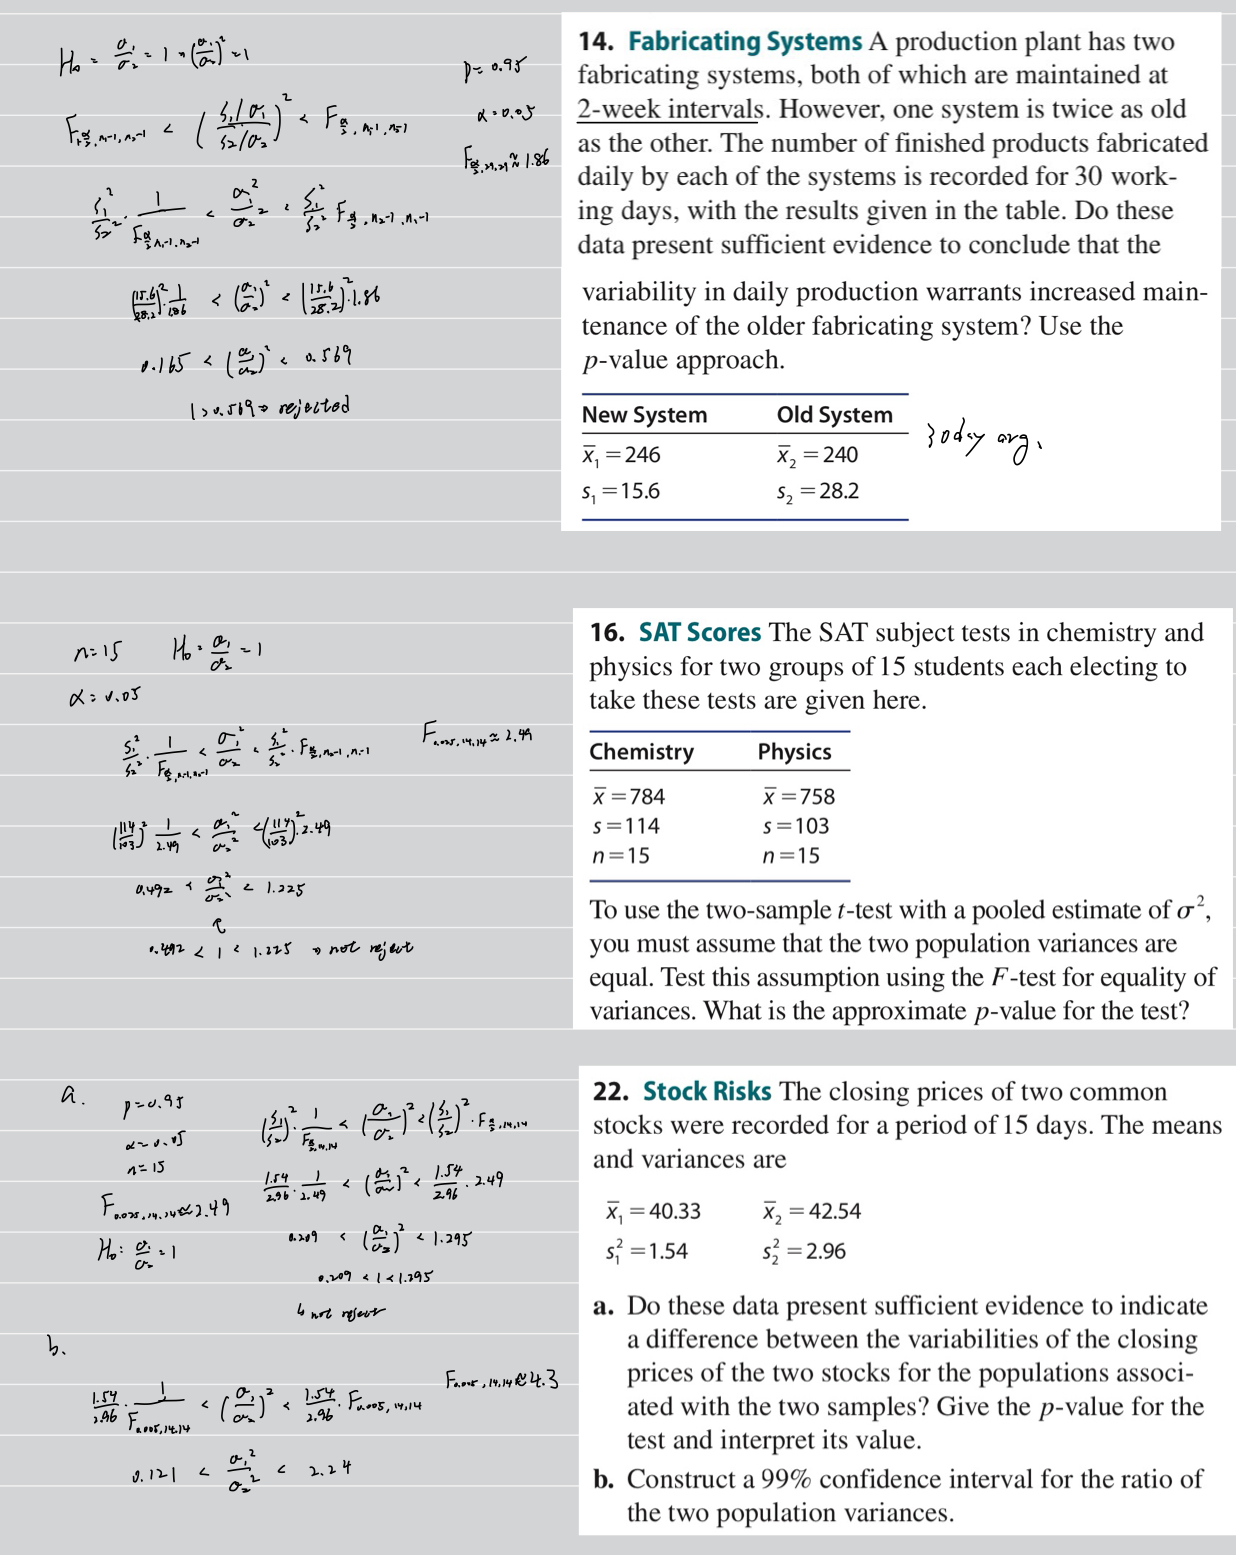 H₀ = σ₁/σ₂ = 1 → (σ₁/σ₂)² = 1
p = 0.95
α = 0.05
F_{α/2, 29, 29} ≈ 1.86
F_{1-α/2, n₁-1, n₂-1} < ( (S₁/σ₁) / (S₂/σ₂) )² < F_{α/2, n₁-1, n₂-1}
S₁²/S₂² · 1/F_{α/2, n₁-1, n₂-1} < σ₁²/σ₂² < S₁²/S₂² F_{α/2, n₂-1, n₁-1}
(15.6/28.2)² · 1/1.86 < (σ₁/σ₂)² < (15.6/28.2)² · 1.86
0.165 < (σ₁/σ₂)² < 0.569
1 > 0.569 → rejected
14. Fabricating Systems A production plant has two
fabricating systems, both of which are maintained at
2-week intervals. However, one system is twice as old
as the other. The number of finished products fabricated
daily by each of the systems is recorded for 30 work-
ing days, with the results given in the table. Do these
data present sufficient evidence to conclude that the
variability in daily production warrants increased main-
tenance of the older fabricating system? Use the
p-value approach.
New System Old System
x̄₁ = 246 x̄₂ = 240
s₁ = 15.6 s₂ = 28.2
30day avg.
n = 15 H₀ : σ₁/σ₂ = 1
α = 0.05
F_{0.025, 14, 14} ≈ 2.49
S₁²/S₂² · 1/F_{α/2, n₁-1, n₂-1} < σ₁²/σ₂² < S₁²/S₂² · F_{α/2, n₂-1, n₁-1}
(114/103)² 1/2.49 < σ₁²/σ₂² < (114/103)² · 2.49
0.492 < σ₁²/σ₂² < 1.225
↑
0.492 < 1 < 1.225 → not reject
16. SAT Scores The SAT subject tests in chemistry and
physics for two groups of 15 students each electing to
take these tests are given here.
Chemistry Physics
x̄ = 784 x̄ = 758
s = 114 s = 103
n = 15 n = 15
To use the two-sample t-test with a pooled estimate of σ²,
you must assume that the two population variances are
equal. Test this assumption using the F-test for equality of
variances. What is the approximate p-value for the test?
a.
p = 0.95
α = 0.05
n = 15
F_{0.025, 14, 14} ≈ 2.49
H₀ : σ₁/σ₂ = 1
(S₁/S₂)² · 1/F_{α/2, 14, 14} < (σ₁/σ₂)² < (S₁/S₂)² · F_{α/2, 14, 14}
1.54/2.96 · 1/2.49 < (σ₁/σ₂)² < 1.54/2.96 · 2.49
0.209 < (σ₁/σ₂)² < 1.295
0.209 < 1 < 1.295
↳ not reject
b.
F_{0.005, 14, 14} ≈ 4.3
1.54/2.96 · 1/F_{0.005, 14, 14} < (σ₁/σ₂)² < 1.54/2.96 · F_{0.005, 14, 14}
0.121 < σ₁²/σ₂² < 2.24
22. Stock Risks The closing prices of two common
stocks were recorded for a period of 15 days. The means
and variances are
x̄₁ = 40.33 x̄₂ = 42.54
s₁² = 1.54 s₂² = 2.96
a. Do these data present sufficient evidence to indicate
a difference between the variabilities of the closing
prices of the two stocks for the populations associ-
ated with the two samples? Give the p-value for the
test and interpret its value.
b. Construct a 99% confidence interval for the ratio of
the two population variances.